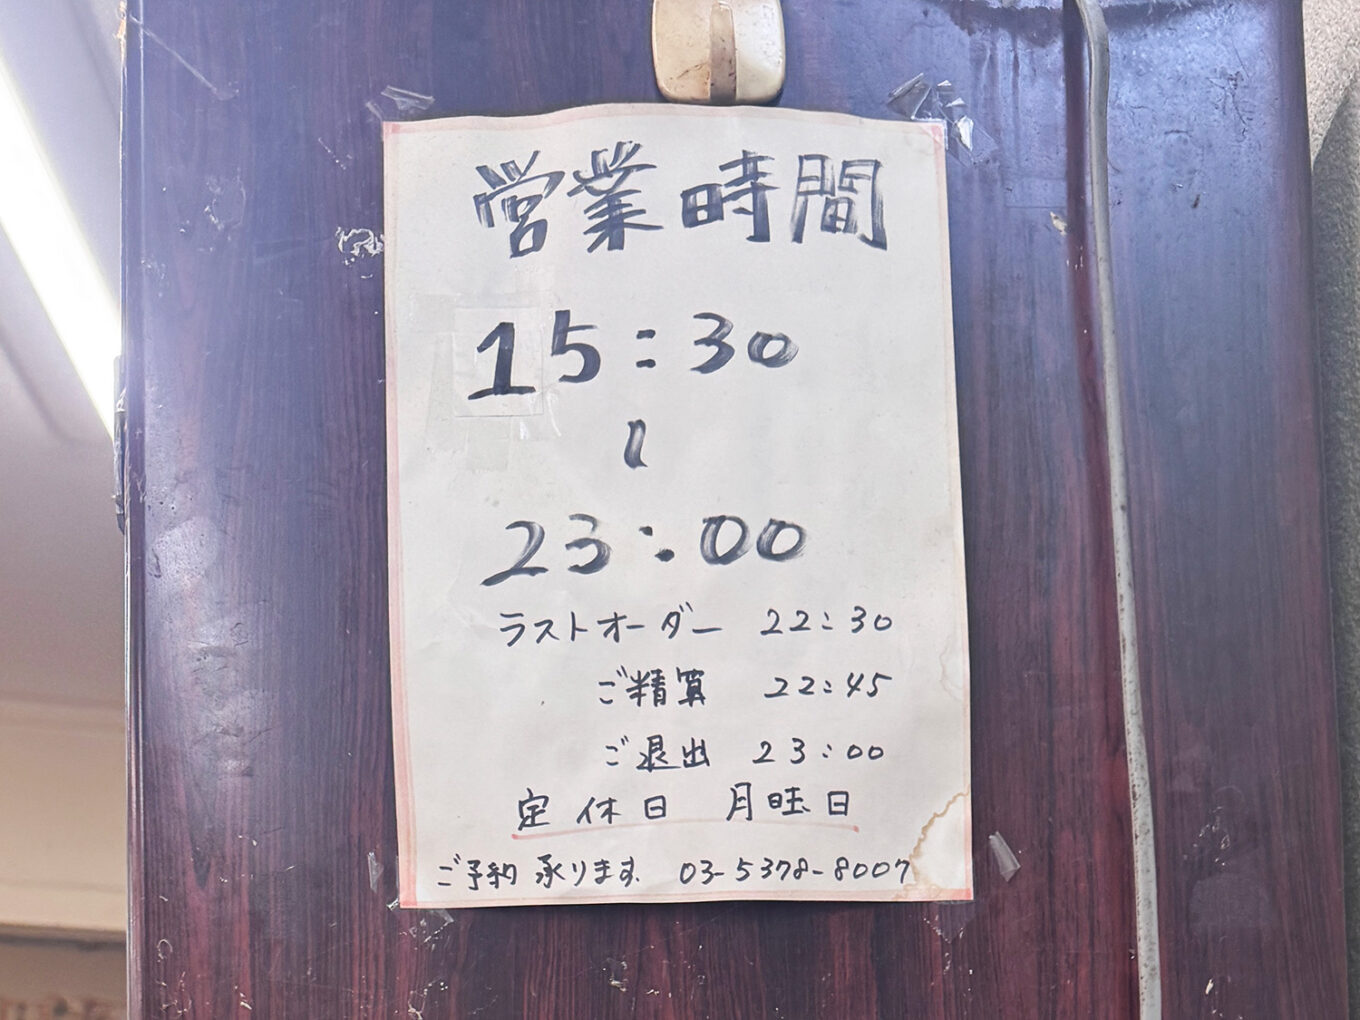 営業時間
15:30
〜
23:00
ラストオーダー 22:30
ご精算 22:45
ご退出 23:00
定休日 月曜日
ご予約承ります 03-5378-8007